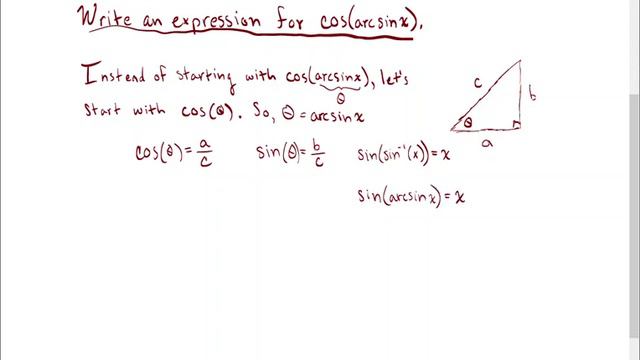 Write an expression for cos(arcsinx).
Instead of starting with cos(arcsinx), let's
θ
start with cos(θ). So, θ = arcsinx
cos(θ) = a/c sin(θ) = b/c sin(sin⁻¹(x)) = x
sin(arcsinx) = x
c
b
θ
a